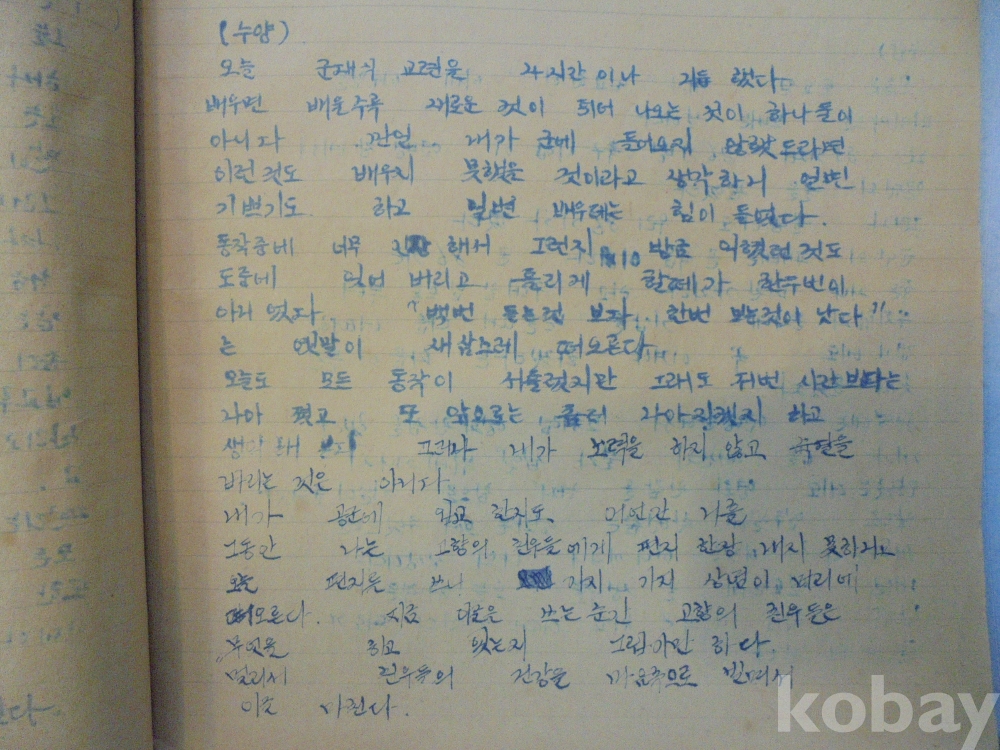 (수양)
오늘 군대식 교련을 24시간이나 거듭 했다
배우면 배울수록 새로운 것이 튀어 나오는 것이 하나 둘이
아니다 만일 내가 군에 들어오지 않았드라면
이런것도 배우지 못했을 것이라고 생각하니 일변
기쁘기도 하고 일변 배우데는 힘이 들었다.
동작중에 너무 해서 그런지 방금 익혔던것도
도중에 잊어 버리고 틀리게 할때가 한두번이
아니였다. "백번 듣는것 보다 한번 보는것이 낫다"
는 옛말이 새삼스레 떠오른다
오늘도 모든 동작이 서툴렀지만 그래도 저번 시간보다는
나아 졌고 또 앞으로는 좀더 나아지겠지 하고
생각해 본다 그러나 내가 노력을 하지 않고 숙달을
바라는 것은 아니다
내가 군문에 입고 한지도 어언간
그동안 나는 고향의 친우들에게 편지 한장 내지 못하고
오늘 편지를 쓰니 가지 가지 상념이 머리에
떠오른다. 지금 이 쓰는순간 고향의 친우들은
무엇을 하고 있는지 그립기만 하다.
멀리서 친우들의 건강을 마음속으로 빌면서
이만 마친다.
kobay